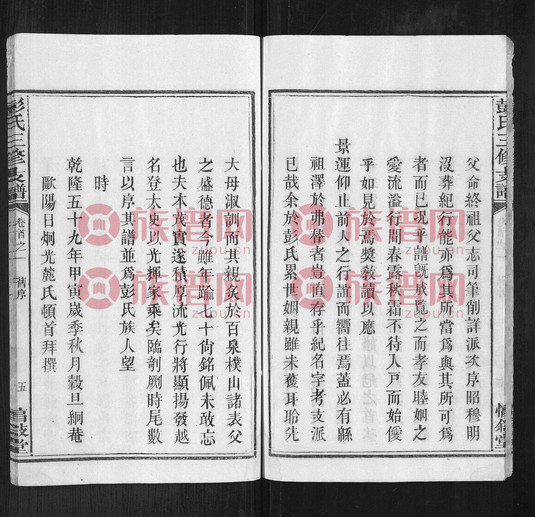 彭氏三修支譜
父命終祖父志司筆削詳派次序昭穆明
沒葬紀行能亦為其所當為與其所可為
者而已現乎譜旣成覽之而孝友睦姻之
愛流溢行間春露秋霜不待入戸而始僾
乎如見於焉獎敎讀以應
景運仰止前人之行誼而嚮往焉蓋必有緜
祖澤於弗替者豈直存乎紀名字考支派
已哉余於彭氏累世姻親雖未獲耳聆先
大母淑訓而其親炙於百泉樸山諸表父
之盛德者今雖年踰七十尙銘佩未敢忘
也夫本茂實遂積厚流光行將顯揚發越
名登太史以光輝家乘矣臨剞劂時尾數
言以序其譜並為彭氏族人望
時
乾隆五十九年甲寅歲季秋月穀旦一絅菴
歐陽日炯光麓氏頓首拜撰
彭氏三修支譜
卷首之一
舊序
五
族譜网
zupu.com